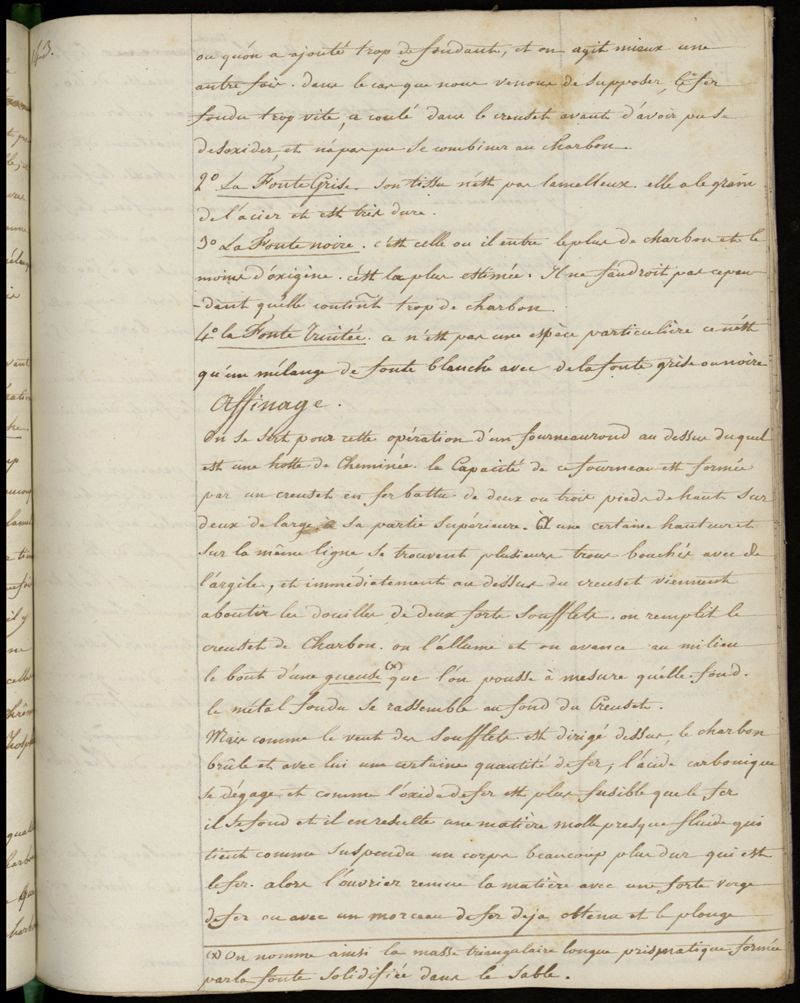 143.
ou qu'on a ajouté trop de fondants, et on agit mieux une
autre fois. dans le cas que nous venons de supposer, le fer
fondu trop vite, a coulé dans le creuset avant d'avoir pu se
desoxider, et n'a pas pu se combiner au charbon.
2º. La Fonte Grise. son tissu n'est pas lamelleux. elle a le grain
de l'acier et est très dure.
3º La Fonte noire. c'est celle ou il entre le plus de charbon et le
moins d'oxigène. c'est la plus estimée. Il ne faudroit pas cepen-
-dant qu'elle contint trop de charbon.
4º la Fonte Truitée. ce n'est pas une espèce particulière ce n'est
qu'un mélange de fonte blanche avec de la fonte grise ou noire
Affinage.
On se sert pour cette opération d'un fourneau rond au dessus duquel
est une hotte de Cheminée. la Capacité de ce fourneau est formée
par un creuset en fer battu de deux ou trois pieds de haut sur
deux de large à sa partie supérieure. à une certaine hauteur et
sur la même ligne se trouvent plusieurs trous bouchés avec de
l'argile, et immédiatement au dessus du creuset viennent
aboutir les douilles de deux forts soufflets. on remplit le
creuset de Charbon. on l'allume et on avance au milieu
le bout d'une gueuse (x) que l'on pousse à mesure qu'elle fond.
le métal fondu se rassemble au fond du Creuset.
Mais comme le vent des soufflets est dirigé dessus, le charbon
brûle et avec lui une certaine quantité de fer; l'acide carbonique
se dégage et comme l'oxide de fer est plus fusible que le fer
il se fond et il en resulte une matière molle presque fluide qui
tient comme suspendu un corps beaucoup plus dur qui est
le fer. alors l'ouvrier remue la matière avec une forte verge
de fer ou avec un morceau de fer deja obtenu et le plonge
(x) On nomme ainsi la masse triangulaire longue prismatique formée
par la fonte solidifiée dans le sable.